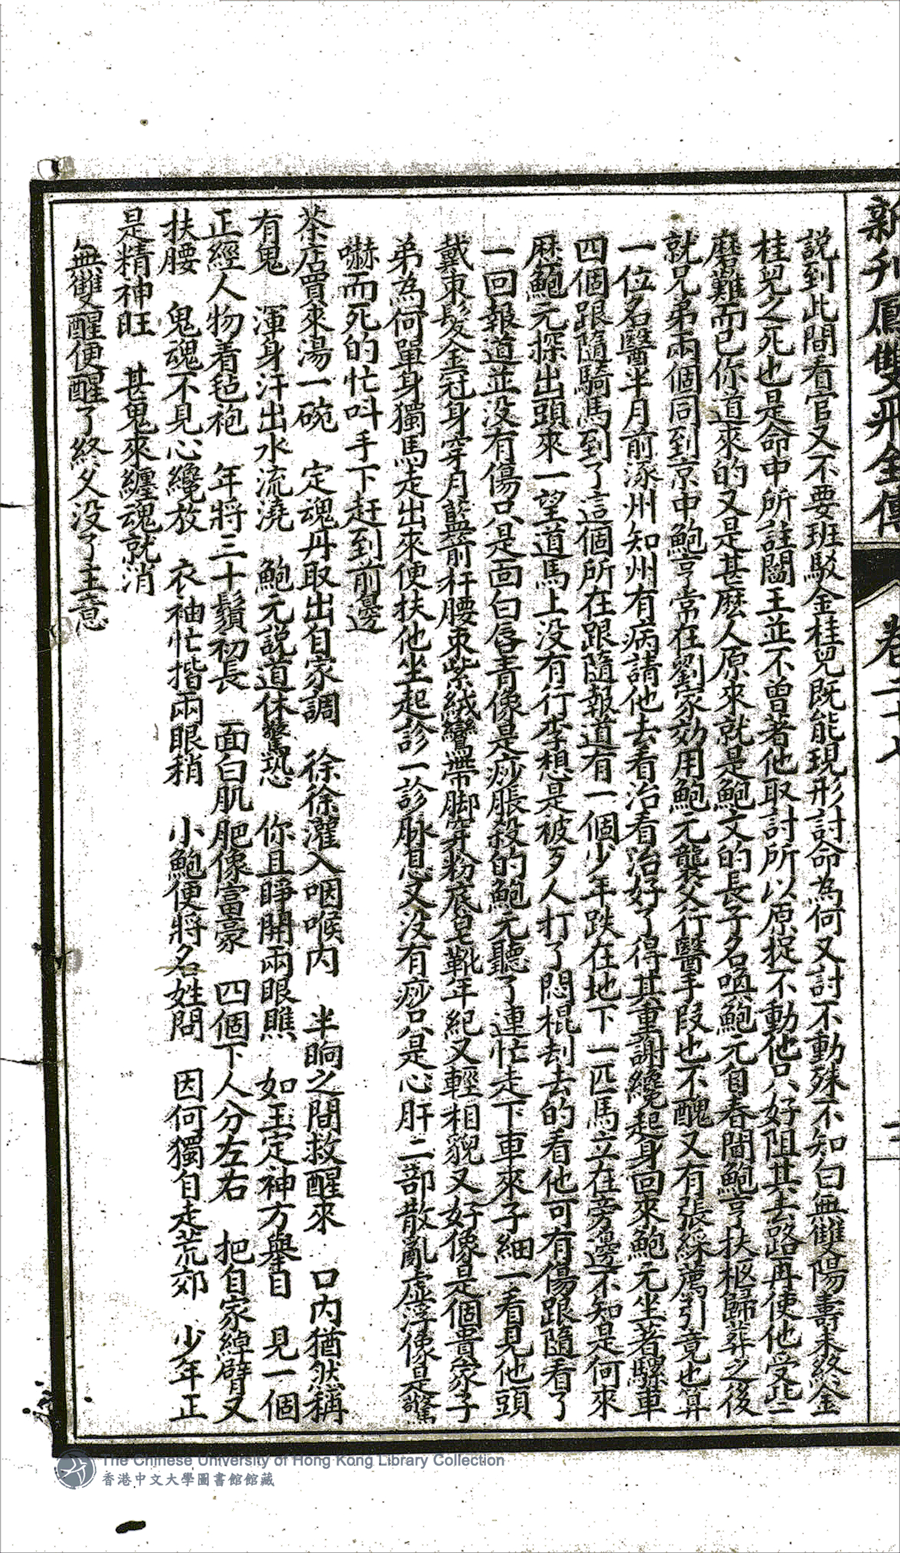 新刊鳳雙飛全傳 卷二十
說到此間看官又不要班駁金桂兒既能現形討命為何又討不動殊不知白無雙陽壽未終金
桂兒之死也是命中所註閻王並不曾著他取討所以原捉不動他只好阻其去路再使他受些
磨難而已你道來的又是甚麼人原來就是鮑文的長子名喚鮑元自春間鮑亨扶柩歸葬之後
就兄弟兩個同到京中鮑亨常在劉家効用鮑元襲父行醫手段也不醜又有張綵薦引竟也算
一位名醫半月前涿州知州有病請他去看治看治好了得其重謝纔起身回來鮑元坐著騾車
四個跟隨騎馬到了這個所在跟隨報道有一個少年跌在地下一匹馬立在旁邊不知是何來
歷鮑元探出頭來一望道馬上沒有行李想是被歹人打了悶棍刦去的看他可有傷跟隨看了
一回報道並沒有傷只是面白唇青像是痧脹殺的鮑元聽了連忙走下車來子細一看見他頭
戴束髮金冠身穿月藍箭杆腰束紫絨鸞帶脚穿粉底皂靴年紀又輕相貌又好像是個貴家子
弟為何單身獨馬走出來便扶他坐起診一診脉息又沒有痧只是心肝二部散亂虛浮像是驚
嚇而死的忙呌手下赶到前邊
茶店買來湯一碗 定魂丹取出自家調 徐徐灌入咽喉內 半晌之間救醒來 口內猶然稱
有鬼 渾身汗出水流澆 鮑元說道休驚恐 你且睜開兩眼瞧 如玉定神方舉目 見一個
正經人物着毡袍 年將三十鬚初長 面白肌肥像富豪 四個下人分左右 把自家綽臂又
扶腰 鬼魂不見心纔放 衣袖忙揩兩眼稍 小鮑便將名姓問 因何獨自走荒郊 少年正
是精神旺 甚鬼來纏魂就消
無雙醒便醒了終久沒了主意
The Chinese University of Hong Kong Library Collection
香港中文大學圖書館館藏